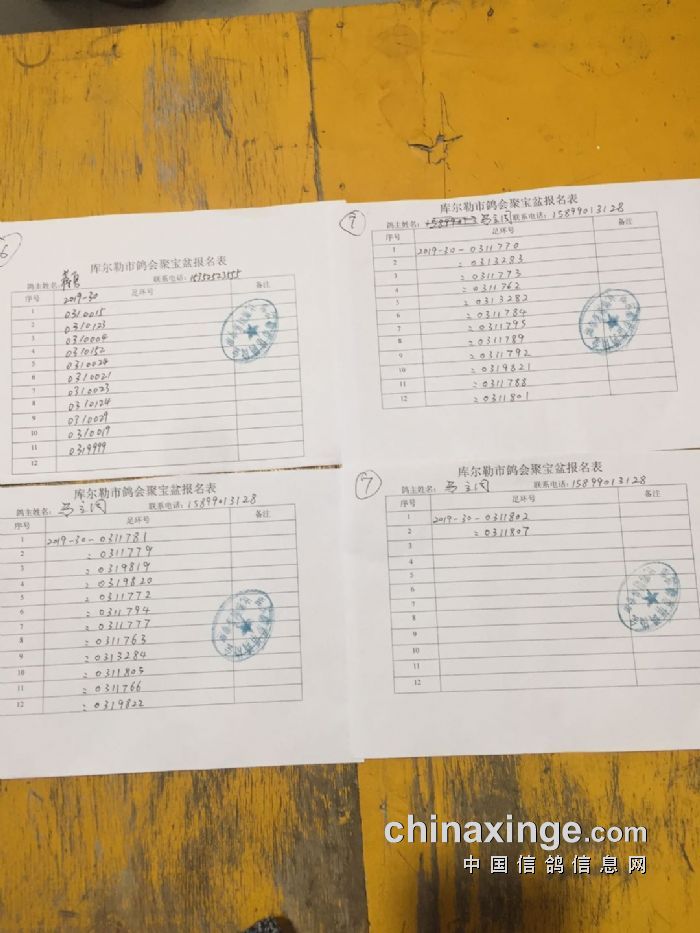 6
库尔勒市鸽会聚宝盆报名表
鸽主姓名: 联系电话: 15352523555
序号 足环号 备注
2019-30
1 0310015
2 0310123
3 0310004
4 0310152
5 0310024
6 0310021
7 0310023
8 0310124
9 0310029
10 0310019
11 0319999
12
7
库尔勒市鸽会聚宝盆报名表
鸽主姓名: 马立国 联系电话: 15899013128
序号 足环号 备注
1 2019-30-0311770
2 =0313283
3 =0311773
4 =0311762
5 =0313282
6 =0311784
7 =0311795
8 =0311789
9 =0311792
10 =0319821
11 =0311788
12 =0311801
库尔勒市鸽会聚宝盆报名表
鸽主姓名: 马立国 联系电话: 15899013128
序号 足环号 备注
1 2019-30-0311781
2 =0311779
3 =0319819
4 =0319820
5 =0311772
6 =0311794
7 =0311777
8 =0311763
9 =0313284
10 =0311805
11 =0311766
12 =0319822
7
库尔勒市鸽会聚宝盆报名表
鸽主姓名: 马立国 联系电话: 15899013128
序号 足环号 备注
1 2019-30-0311802
2 =0311807
3
4
5
6
7
8
9
10
11
12
chinaxinge.com
中国信鸽信息网